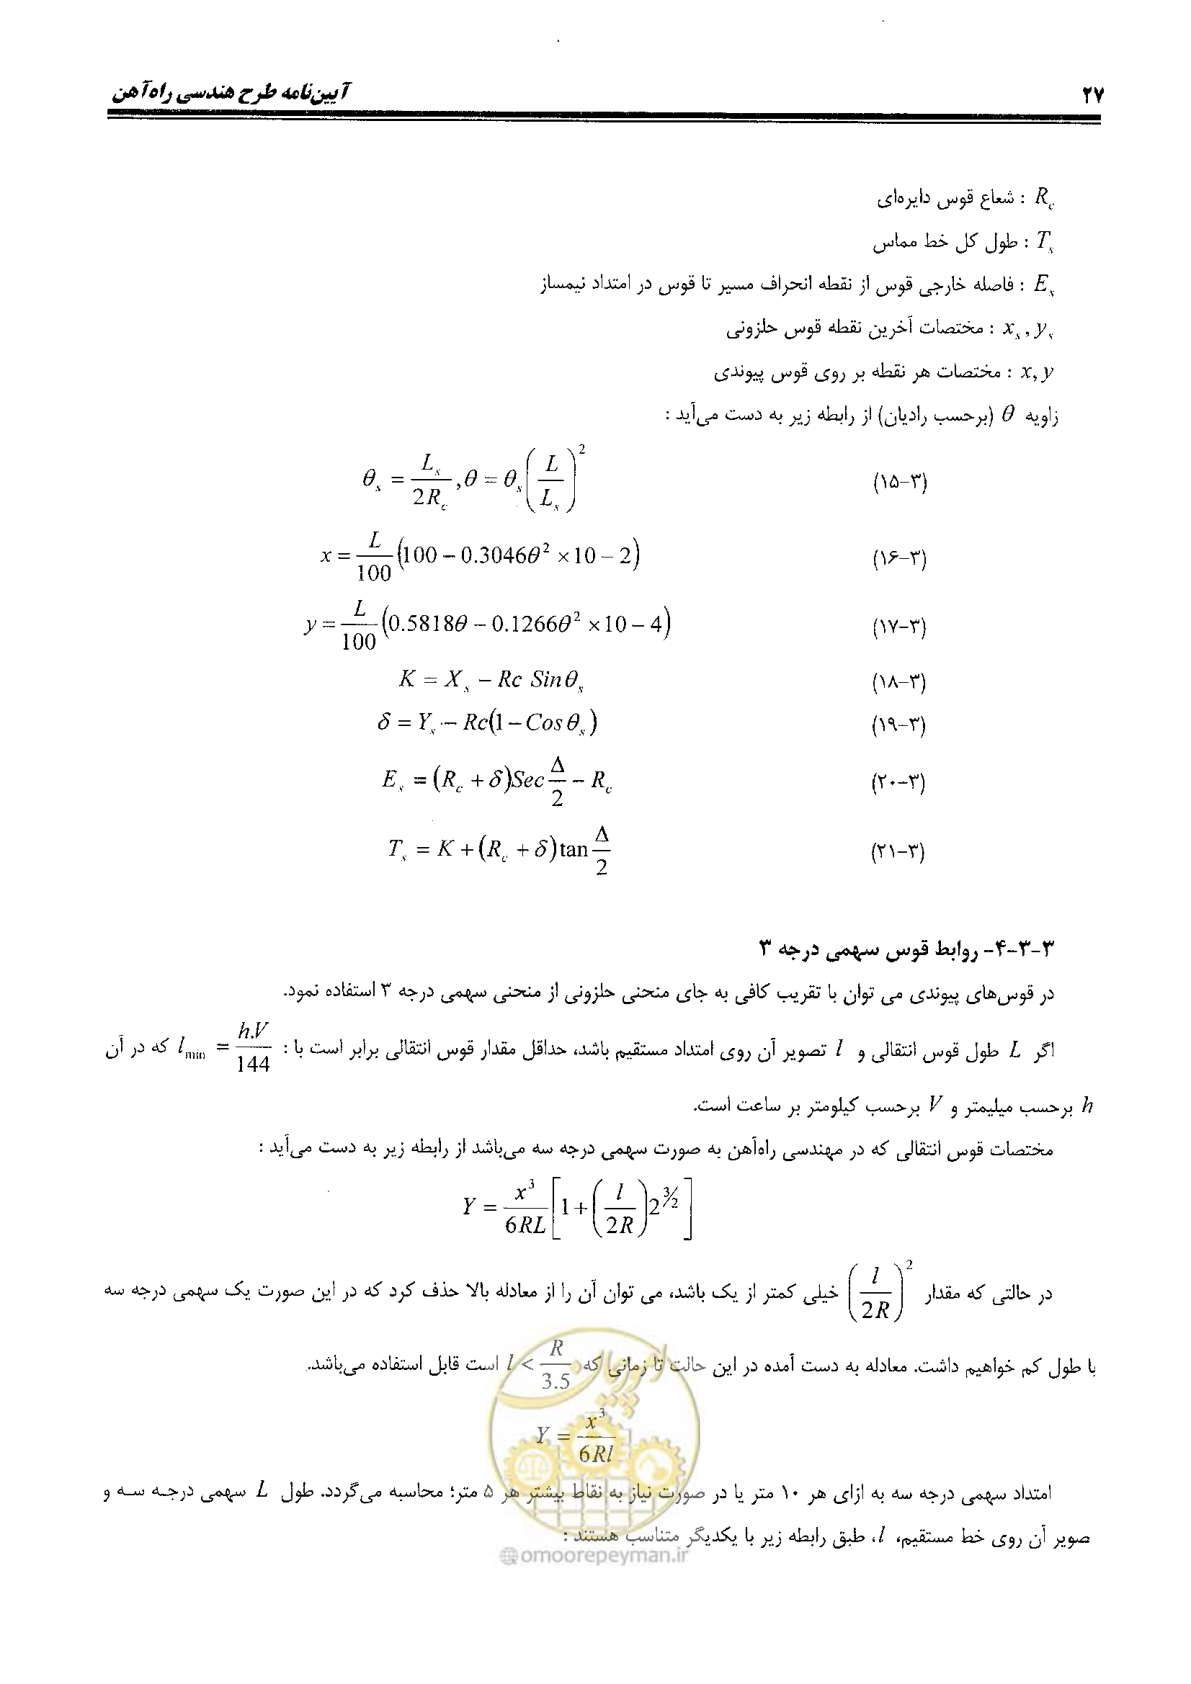 ۲۷ آیین‌نامه طرح هندسی راه‌آهن
R_c : شعاع قوس دایره‌ای
T_s : طول کل خط مماس
E_s : فاصله خارجی قوس از نقطه انحراف مسیر تا قوس در امتداد نیمساز
x_s , y_s : مختصات آخرین نقطه قوس حلزونی
x, y : مختصات هر نقطه بر روی قوس پیوندی
زاویه θ (برحسب رادیان) از رابطه زیر به دست می‌آید :
(۱۵-۳) θ_s = L_s / 2R_c , θ = θ_s (L / L_s)^2
(۱۶-۳) x = L/100 (100 − 0.3046θ^2 × 10 − 2)
(۱۷-۳) y = L/100 (0.5818θ − 0.1266θ^2 × 10 − 4)
(۱۸-۳) K = X_s − Rc Sinθ_s
(۱۹-۳) δ = Y_s − Rc(1 − Cosθ_s)
(۲۰-۳) E_s = (R_c + δ)Sec Δ/2 − R_c
(۲۱-۳) T_s = K + (R_c + δ)tan Δ/2
۳-۳-۴- روابط قوس سهمی درجه ۳
در قوس‌های پیوندی می توان با تقریب کافی به جای منحنی حلزونی از منحنی سهمی درجه ۳ استفاده نمود.
اگر L طول قوس انتقالی و l تصویر آن روی امتداد مستقیم باشد، حداقل مقدار قوس انتقالی برابر است با : l_min = h.V / 144 که در آن
h برحسب میلیمتر و V برحسب کیلومتر بر ساعت است.
مختصات قوس انتقالی که در مهندسی راه‌آهن به صورت سهمی درجه سه می‌باشد از رابطه زیر به دست می‌آید :
Y = x^3 / 6RL [1 + (l / 2R) 2^3/2]
در حالتی که مقدار (l / 2R)^2 خیلی کمتر از یک باشد، می توان آن را از معادله بالا حذف کرد که در این صورت یک سهمی درجه سه
با طول کم خواهیم داشت. معادله به دست آمده در این حالت تا زمانی که l < R / 3.5 است قابل استفاده می‌باشد.
Y = x^3 / 6Rl
امتداد سهمی درجه سه به ازای هر ۱۰ متر یا در صورت نیاز به نقاط بیشتر هر ۵ متر؛ محاسبه می‌گردد. طول L سهمی درجه سه و
صویر آن روی خط مستقیم، l، طبق رابطه زیر با یکدیگر متناسب هستند :
امور پیمان
@omoorepeyman.ir